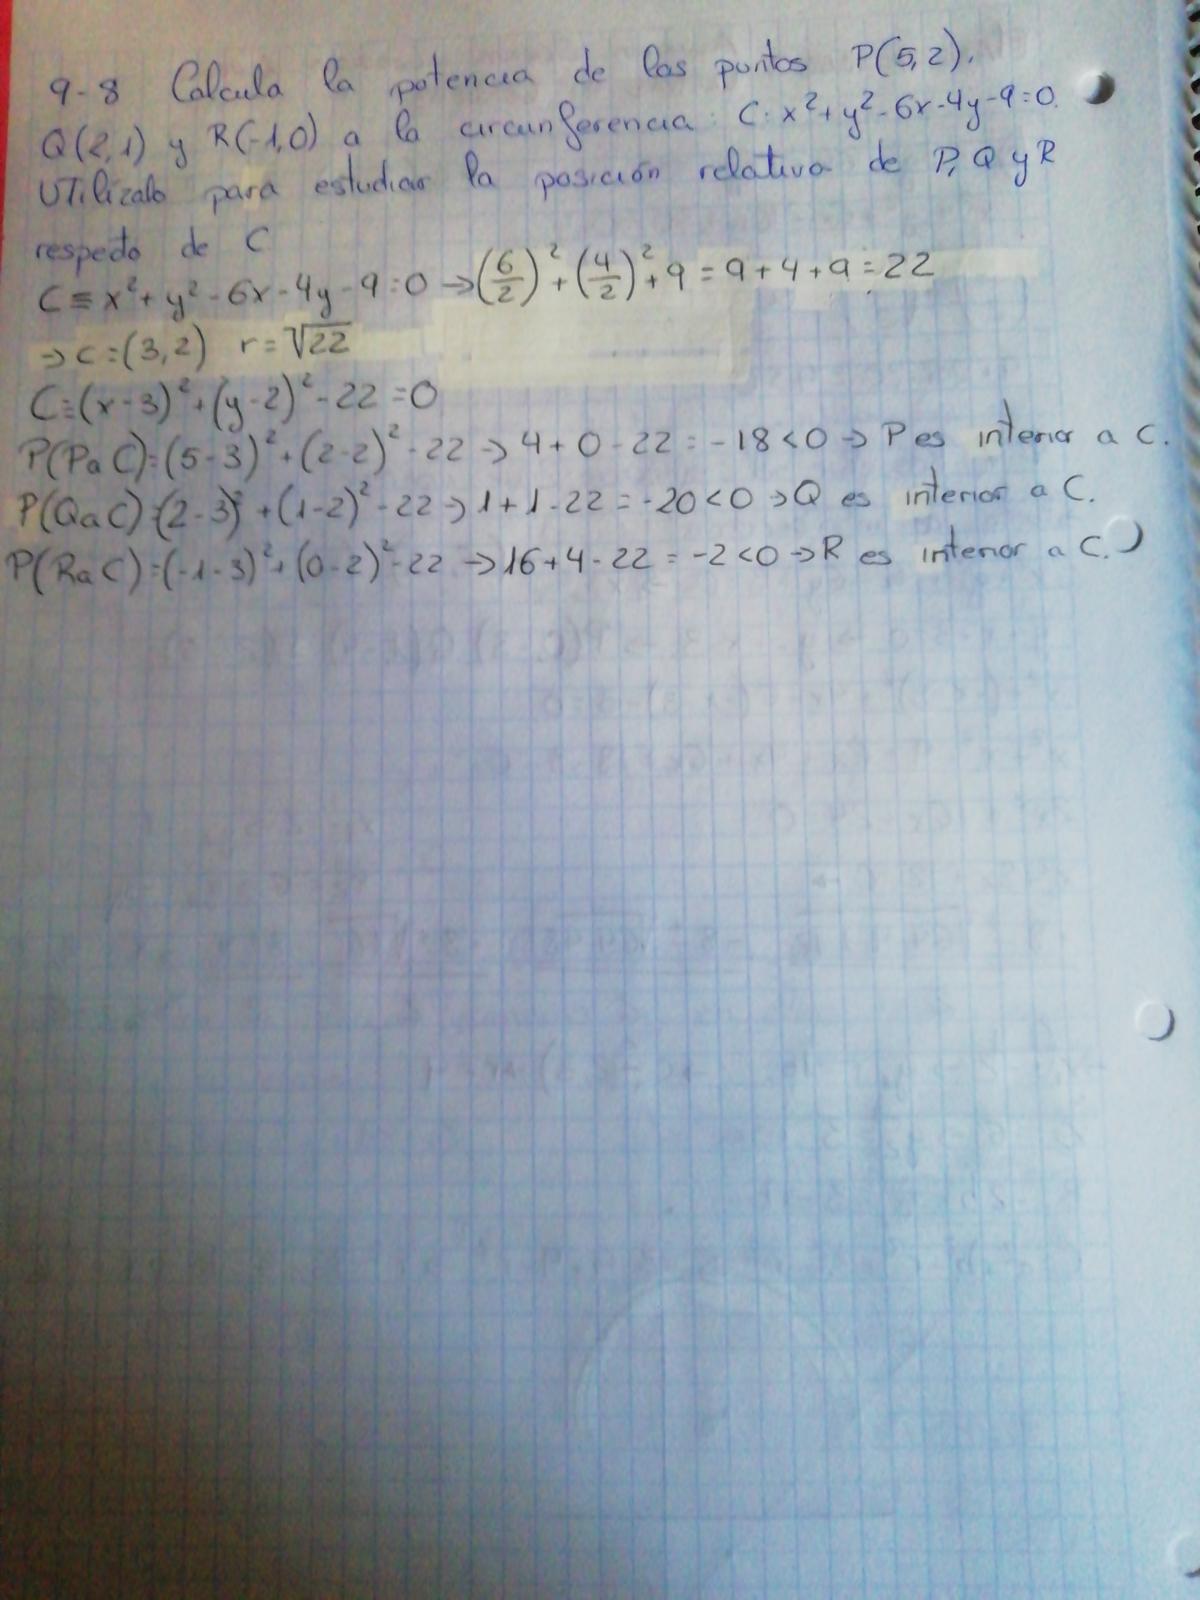 9-8 Calcula la potencia de los puntos P(5,2),
Q(2,1) y R(-1,0) a la circunferencia: C: x²+y²-6x-4y-9=0.
Utilízalo para estudiar la posición relativa de P, Q y R
respecto de C
C≡x²+y²-6x-4y-9=0→(6/2)²+(4/2)²+9=9+4+9=22
→c=(3,2) r=√22
C≡(x-3)²+(y-2)²-22=0
P(P a C)=(5-3)²+(2-2)²-22→4+0-22=-18<0→P es interior a C.
P(Q a C)=(2-3)²+(1-2)²-22→1+1-22=-20<0→Q es interior a C.
P(R a C)=(-1-3)²+(0-2)²-22→16+4-22=-2<0→R es interior a C.